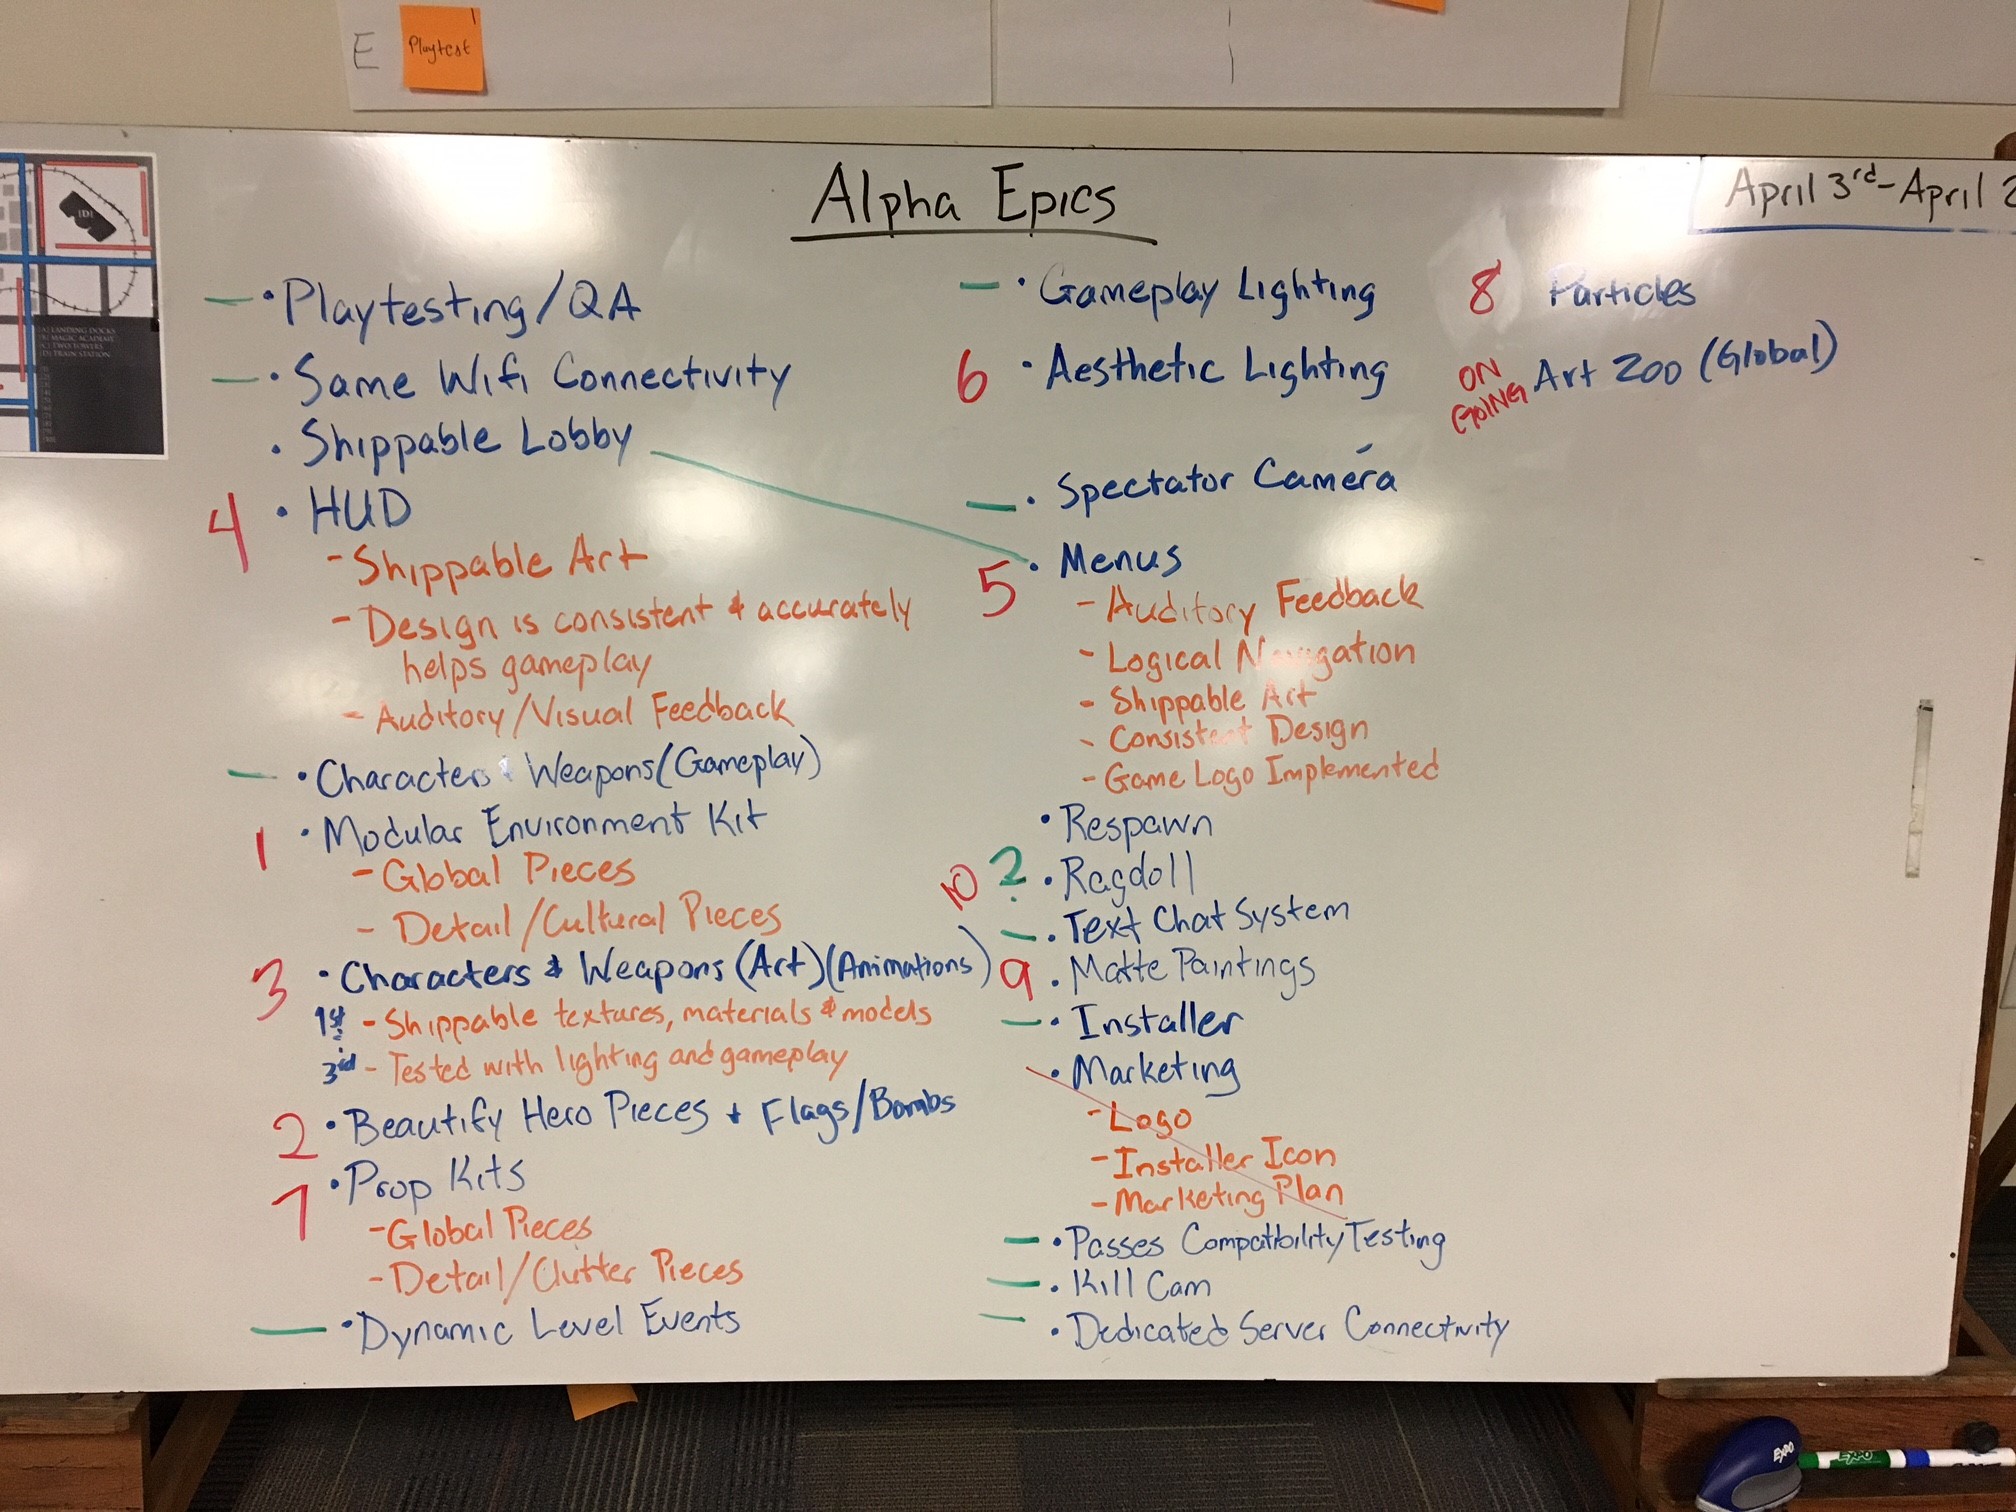 E
Playtest
Alpha Epics
April 3rd-April 2
[D]
[A] LANDING DOCKS
[B] MAGIC ACADEMY
[C] TWO TOWERS
[D] TRAIN STATION
- • Playtesting/QA
- • Same Wifi Connectivity
• Shippable Lobby
4 • HUD
- Shippable Art
- Design is consistent & accurately
helps gameplay
- Auditory/Visual Feedback
- • Characters & Weapons (Gameplay)
1 • Modular Environment Kit
- Global Pieces
- Detail/Cultural Pieces
3 • Characters & Weapons (Art)(Animations)
1st - Shippable textures, materials & models
3rd - Tested with lighting and gameplay
2 • Beautify Hero Pieces + Flags/Bombs
7 • Prop Kits
- Global Pieces
- Detail/Clutter Pieces
- • Dynamic Level Events
- • Gameplay Lighting
6 • Aesthetic Lighting
- • Spectator Camera
5 • Menus
- Auditory Feedback
- Logical Navigation
- Shippable Art
- Consistent Design
- Game Logo Implemented
• Respawn
10 ? • Ragdoll
- • Text Chat System
9 • Matte Paintings
- • Installer
• Marketing
- Logo
- Installer Icon
- Marketing Plan
- • Passes Compatibility Testing
- • Kill Cam
- • Dedicated Server Connectivity
8 Particles
ON GOING Art Zoo (Global)
EXPO
EXPO